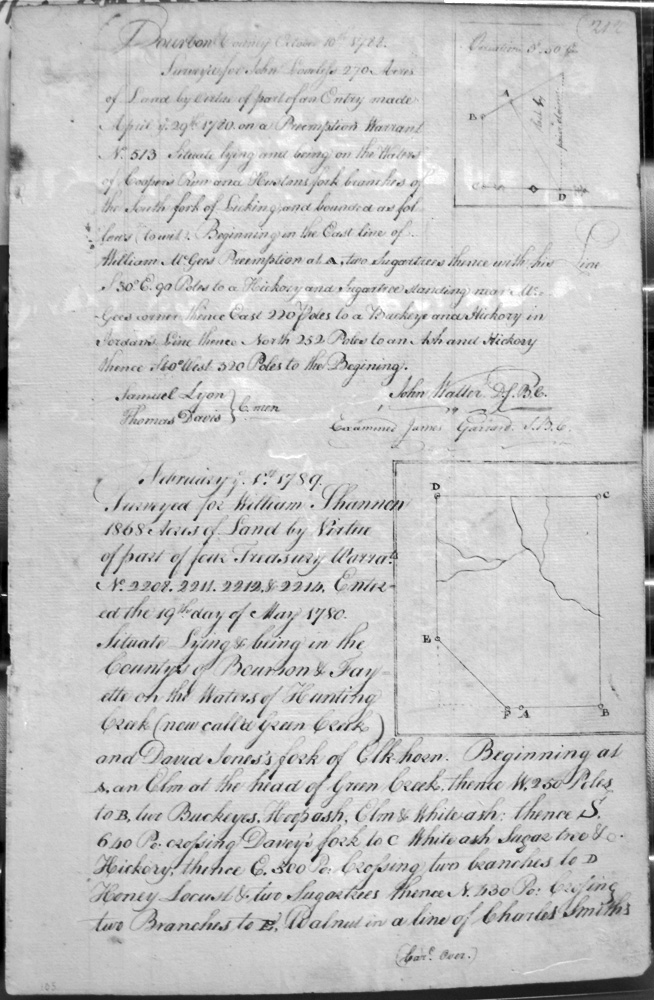 212
Bourbon County October 10th 1788.
Surveyed for John 270 Acres
of Land by Virtue of part of an Entry made
April ye. 29th 1780. on a Preemption Warrant
No. 513 Situate lying and being on the Waters
of Coopers Run and Hustons fork branches of
the South fork of Licking and bounded as fol
lows (to wit). Beginning in the East line of
William McGees Preemption at A, two Sugartrees thence with his Line
S 30° E. 90 Poles to a Hickory and Sugartree standing near Mc.
Gees corner thence East 220 Poles to a Buckeye and Hickory in
Jordans Line thence North 252 Poles to an Ash and Hickory
thence West. 320 Poles to the Begining.
Samuel Lyon
Thomas Davis } C. men
John Walter D.S.B.C.
Examined James Garrard. S.B.C.
A
B
C
D
February ye. 1st 1789.
Surveyed for William Shannon
1868 Acres of Land by Virtue
of part of four Treasury Warrats
No. 2208. 2211. 2212 & 2214. Enter-
ed the 19th day of May 1780.
Situate Lying & being in the
Countys of Bourbon & Fay-
ette on the Waters of Hunting
Creek (now call'd Green Creek)
and David Jones's fork of Elkhorn. Beginning at
A, an Elm at the head of Green Creek, thence W. 250 Poles
to B, two Buckeyes, Hoopash, Elm & White ash: thence S.
640 Po. crossing Davey's fork to C White ash Sugar tree &
Hickory, thence E. 500 Po. Crossing two branches to D
Honey Locust & two Sugartrees thence N. 430 Po: Crossing
two Branches to E, Walnut in a line of Charles Smith's
(Car'd. Over.)
D
C
E
F
A
B
105